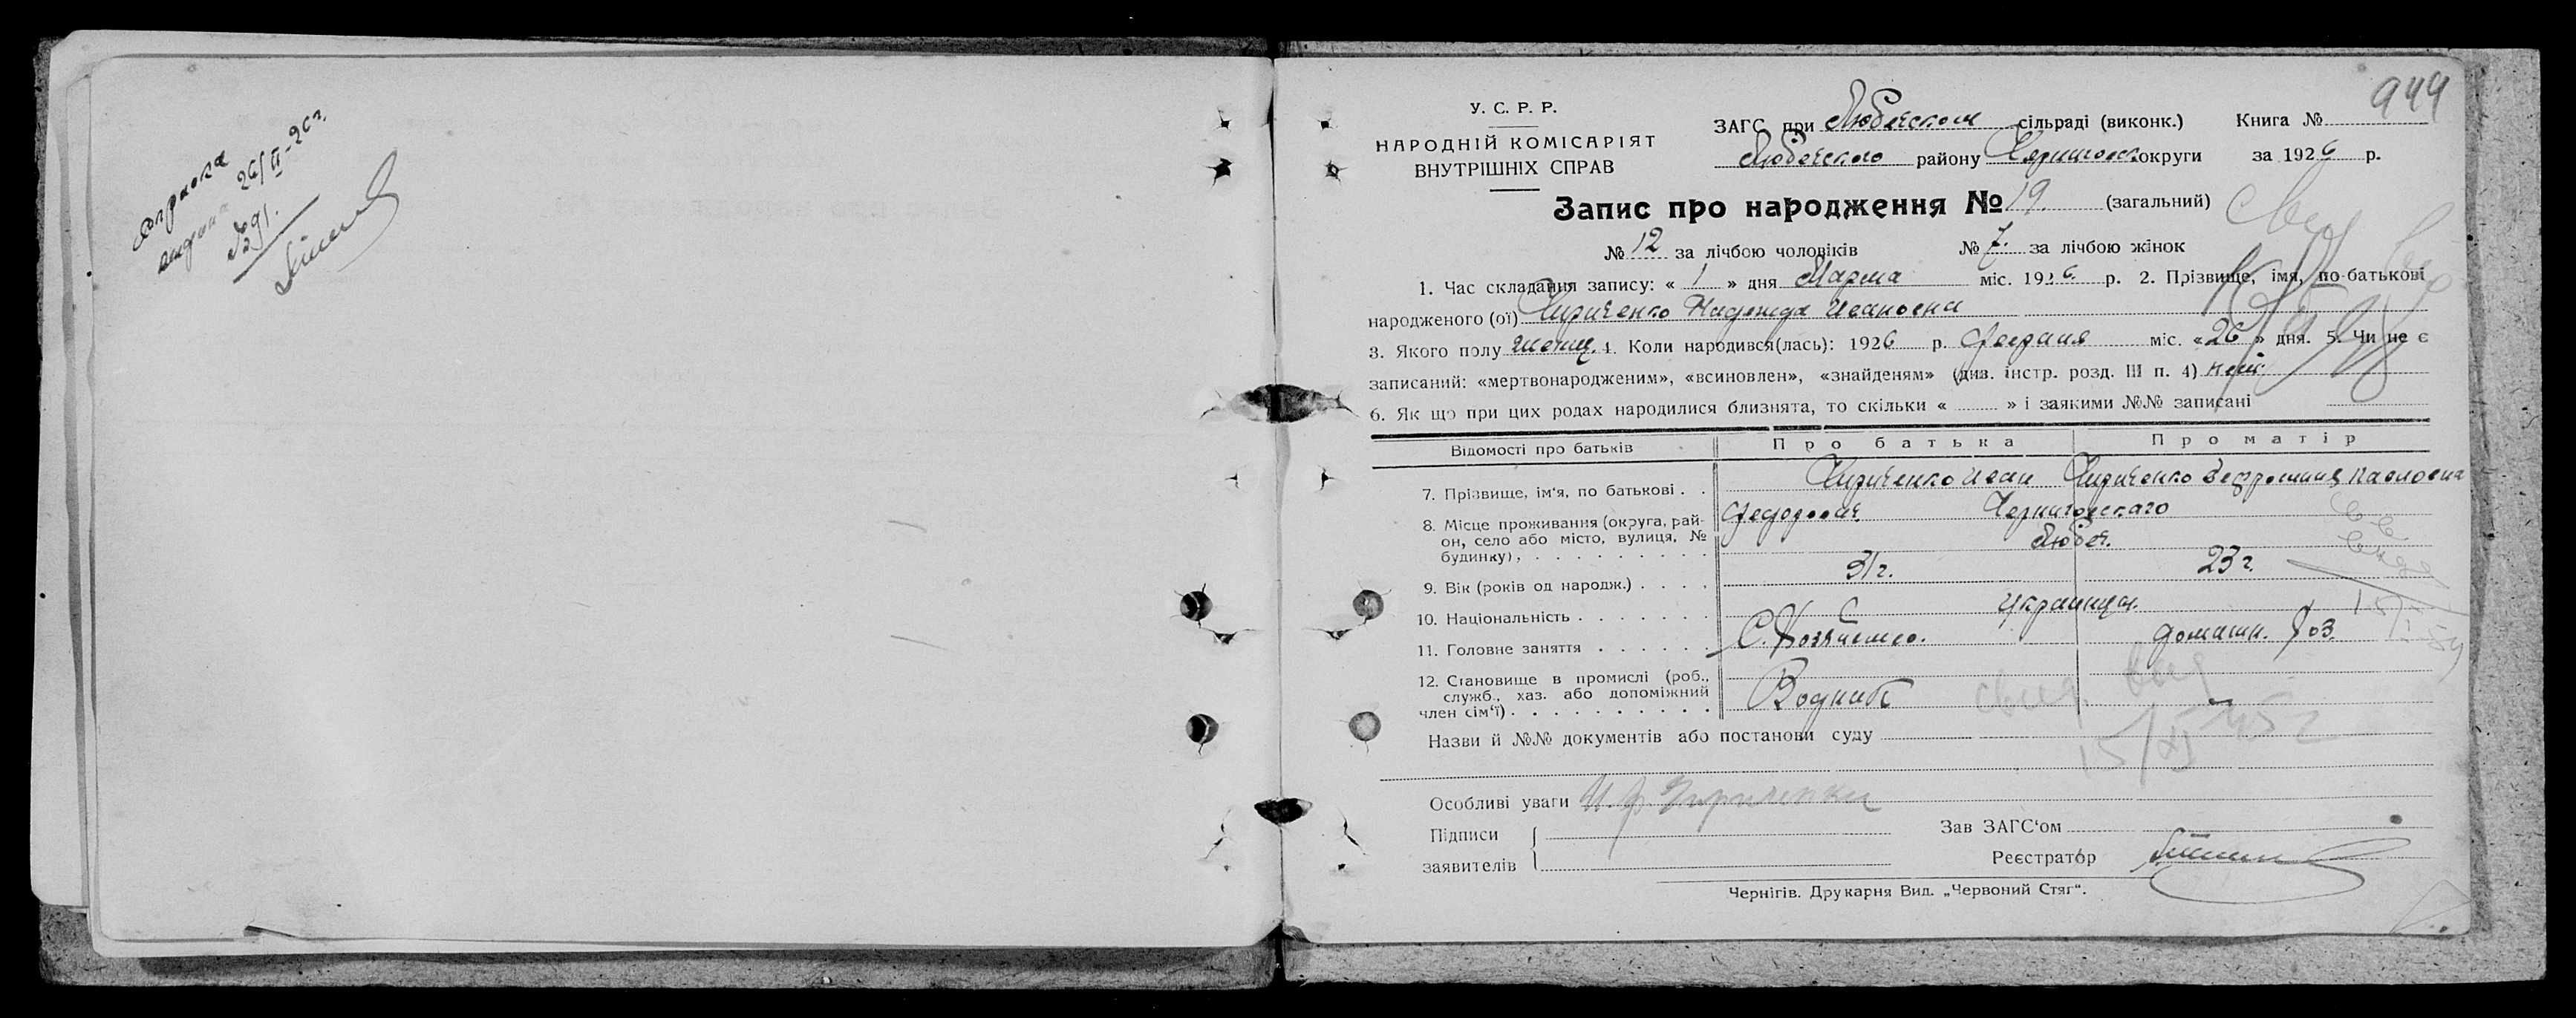 Справка
выдана 26/II-26 г.
№ 91.
944
У. С. Р. Р.
НАРОДНІЙ КОМІСАРІЯТ
ВНУТРІШНІХ СПРАВ
ЗАГС при Любечском сільраді (виконк.) Книга №
Любечского району Черниговск округи за 1926 р.
Запис про народження № 19. (загальний)
№ 12 за лічбою чоловіків № 7. за лічбою жінок
1. Час складання запису: « 1 » дня Марта міс. 1926 р. 2. Прізвище, імя, по-батькові
народженого (ої) Кириченко Надежда Ивановна
3. Якого полу женщ. 4. Коли народився(лась): 1926 р. Февраля міс. «26» дня. 5. Чи не є
записаний: «мертвонародженим», «всиновлен», «знайденям» (див. інстр. розд. III п. 4) нет
6. Як що при цих родах народилися близнята, то скільки « » і заякими №№ записані
Відомості про батьків Про батька Про матір
7. Прізвище, ім'я, по батькові . . Кириченко Иван Кириченко Евфросиния Павловна
Федорович Черниговского
8. Місце проживання (округа, рай-
он, село або місто, вулиця, №
будинку), . . . . . . . . . . Любеч.
9. Вік (років од народж.) . . . . 31 г. 23 г.
10. Національність . . . . . . . украинцы.
11. Головне заняття . . . . . . С. Хозяйство. домашн. хоз.
12. Становище в промислі (роб.,
служб., хаз. або допоміжний
член сім'ї) . . . . . . . . . . Водник
свид выд
15/XI 45 г
Назви й №№ документів або постанови суду
Особливі уваги И. Ф. Кириченко
Підписи
заявителів
Зав ЗАГС'ом
Реєстратор
Чернігів. Друкарня Вид. „Червоний Стяг“.